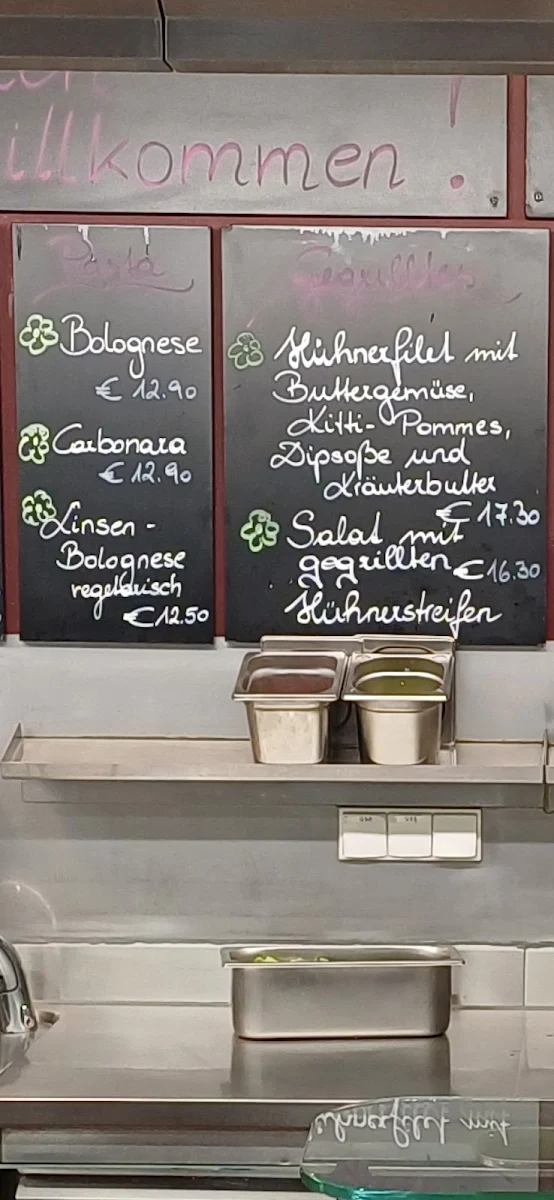 illkommen !
Pasta
Bolognese
€ 12.90
Carbonara
€ 12.90
Linsen -
Bolognese
vegetarisch
€ 12.50
Gegrilltes
Hühnerfilet mit
Buttergemüse,
Kitti- Pommes,
Dipsoße und
Kräuterbutter
€ 17.30
Salat mit
gegrillten
€ 16.30
Hühnerstreifen